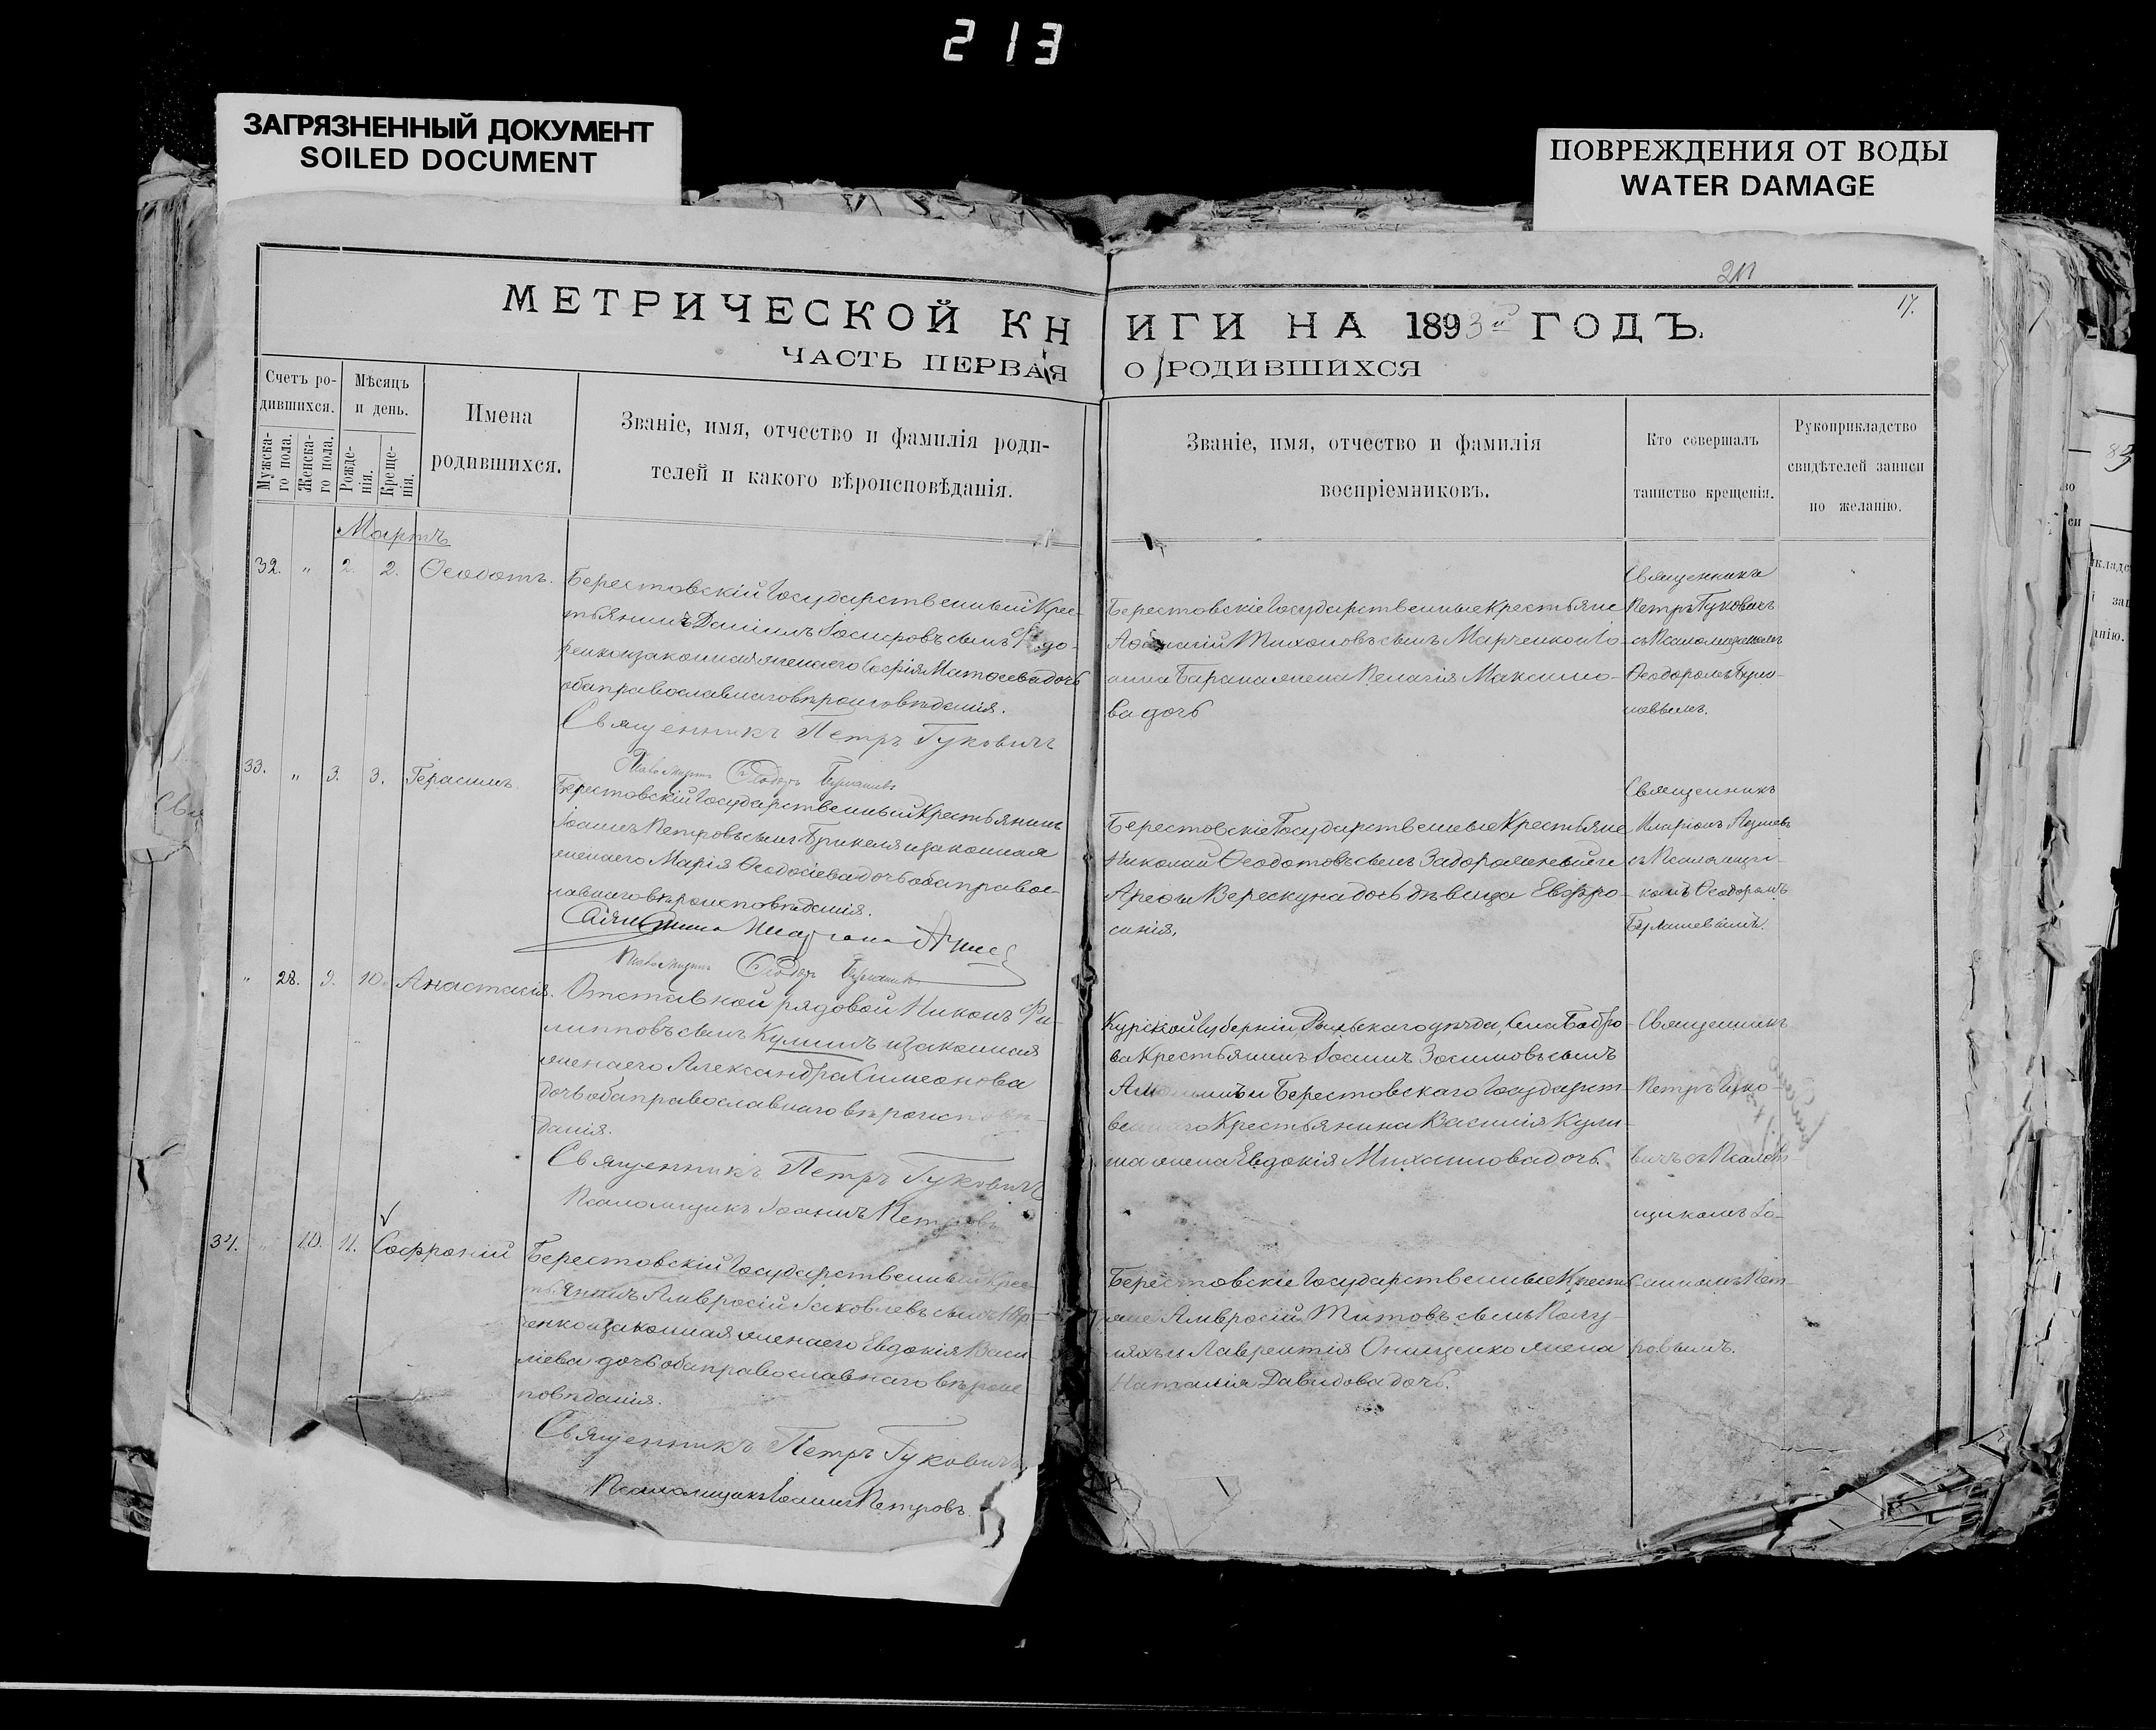 213
ЗАГРЯЗНЕННЫЙ ДОКУМЕНТ
SOILED DOCUMENT
ПОВРЕЖДЕНИЯ ОТ ВОДЫ
WATER DAMAGE
17.
МЕТРИЧЕСКОЙ КНИГИ НА 1893й ГОДЪ.
ЧАСТЬ ПЕРВАЯ О РОДИВШИХСЯ
Счетъ ро-
дившихся.
Мужска-
го пола.
Женска-
го пола.
Мѣсяцъ
и день.
Рожде-
нія.
Креще-
нія.
Имена
родившихся.
Званіе, имя, отчество и фамилія роди-
телей и какого вѣроисповѣданія.
Званіе, имя, отчество и фамилія
воспріемниковъ.
Кто совершалъ
таинство крещенія.
Рукоприкладство
свидѣтелей записи
по желанію.
Мартъ
32. " 2. 2. Ѳеодотъ.
Берестовскій Государственный Крес-
тьянинъ Даніилъ Іосифовъ сынъ
ренко и законная жена его Софія Матѳеева дочь
оба православнаго вѣроисповѣданія.
Священникъ Петръ Гуковичъ
Псаломщикъ Ѳеодоръ
Берестовскіе Государственные Крестьяне
Аѳанасій Тихоновъ сынъ Марченко и Іо-
анна Барана жена Пелагія Максимо-
ва дочь
Священникъ
Петръ Гуковичъ
съ Псаломщикомъ
Ѳеодоромъ
33. " 3. 3. Герасимъ.
Берестовскій Государственный Крестьянинъ
Іоаннъ Петровъ сынъ и законная
жена его Марія Ѳеодосіева дочь оба правос-
лавнаго вѣроисповѣданія.
Псаломщикъ Ѳеодоръ
Берестовскіе Государственные Крестьяне
Николай Ѳеодотовъ сынъ Задорожный и
Арефы Верескуна дочь дѣвица Евфро-
синія.
Священникъ
Иларіонъ
съ Псаломщи-
комъ Ѳеодоромъ
" 28. 9. 10. Анастасія.
Отставной рядовой Никонъ Фи-
липповъ сынъ Кулишъ и законная
жена его Александра Симеонова
дочь оба православнаго вѣроисповѣ-
данія.
Священникъ Петръ Гуковичъ
Псаломщикъ Іоаннъ Петровъ
Курской Губерніи, уѣзда, Села Бобро-
ва Крестьянинъ Іоаннъ Зосимовъ сынъ
и Берестовскаго Государст-
веннаго Крестьянина Василія Кули-
ша жена Евдокія Михаилова дочь.
Священникъ
Петръ Гуко-
вичъ съ Псалом-
щикомъ Іо-
анномъ Пет-
ровымъ.
34. " 10. 11. Софроній
Берестовскій Государственный Крес-
тьянинъ Амвросій Іаковлевъ сынъ
ченко и законная жена его Евдокія Васи-
ліева дочь оба православнаго вѣроис-
повѣданія.
Священникъ Петръ Гуковичъ
Псаломщикъ Іоаннъ Петровъ.
Берестовскіе Государственные Кресть-
яне Амвросій Титовъ сынъ Полу-
ляхъ и Лаврентія Онищенко жена
Наталія Давидова дочь.